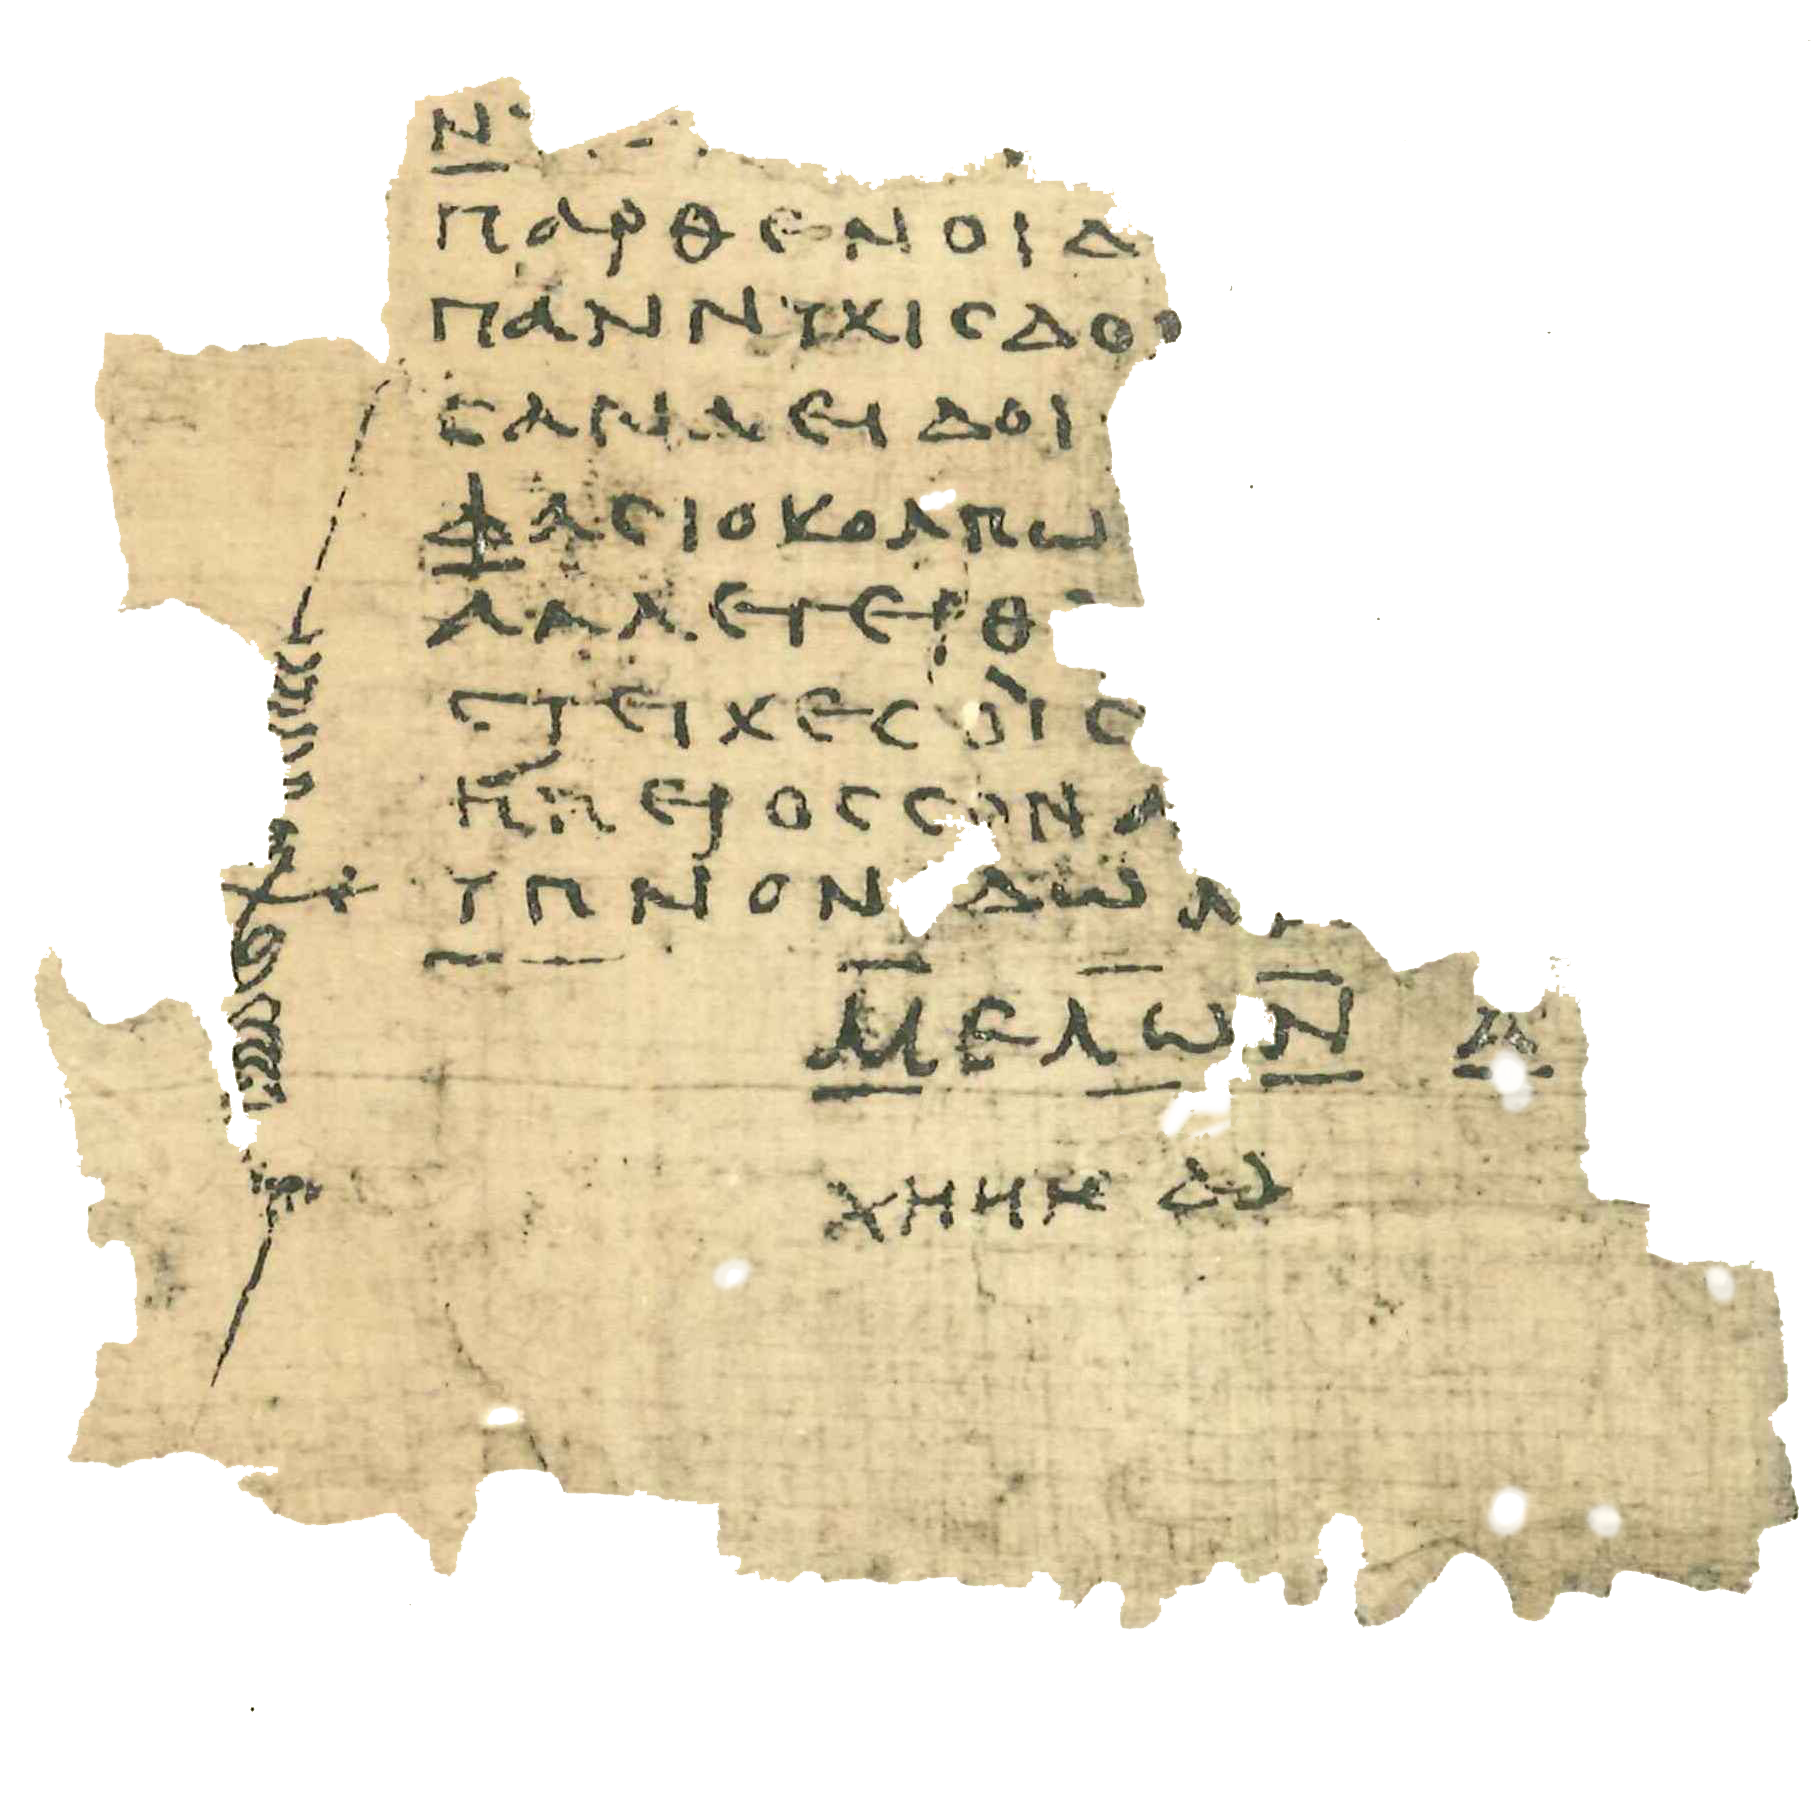 Ν
ΠΑΡΘΕΝΟΙΔ
ΠΑΝΝΥΧΙСΔΟ
СΑΝΑΕΙΔΟΙ
ΦΑСΙΟΚΟΛΠΩ
ΑΛΛΕΓΕΡΘ
СΤΕΙΧΕСΟΙС
ΗΠΕΡΟССΟΝΑ
ΥΠΝΟΝ ΔΩΜ
ΜΕΛΩΝ Α
ΧΗΗΗ ΔΔ